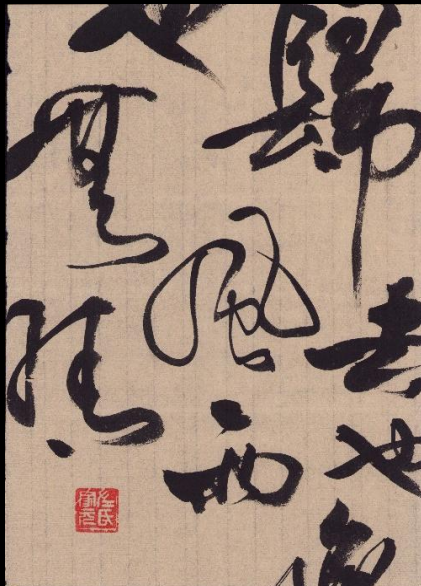 歸去也無
風雨
也無晴